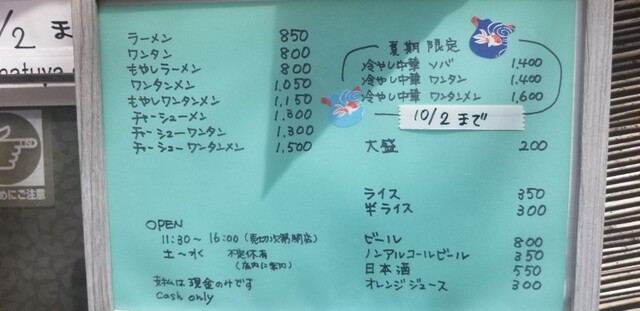 /2 ま
natuya
めにご注意
ラーメン 850
ワンタン 800
もやしラーメン 800
ワンタンメン 1,050
もやしワンタンメン 1,150
チャーシューメン 1,300
チャーシューワンタン 1,300
チャーシューワンタンメン 1,500
OPEN
11:30〜16:00(売切次第閉店)
土〜水 不定休有
(店内に掲示)
支払は現金のみです
cash only
夏期限定
冷やし中華 ソバ 1,400
冷やし中華 ワンタン 1,400
冷やし中華 ワンタンメン 1,600
10/2まで
大盛 200
ライス 350
半ライス 300
ビール 800
ノンアルコールビール 350
日本酒 550
オレンジジュース 300